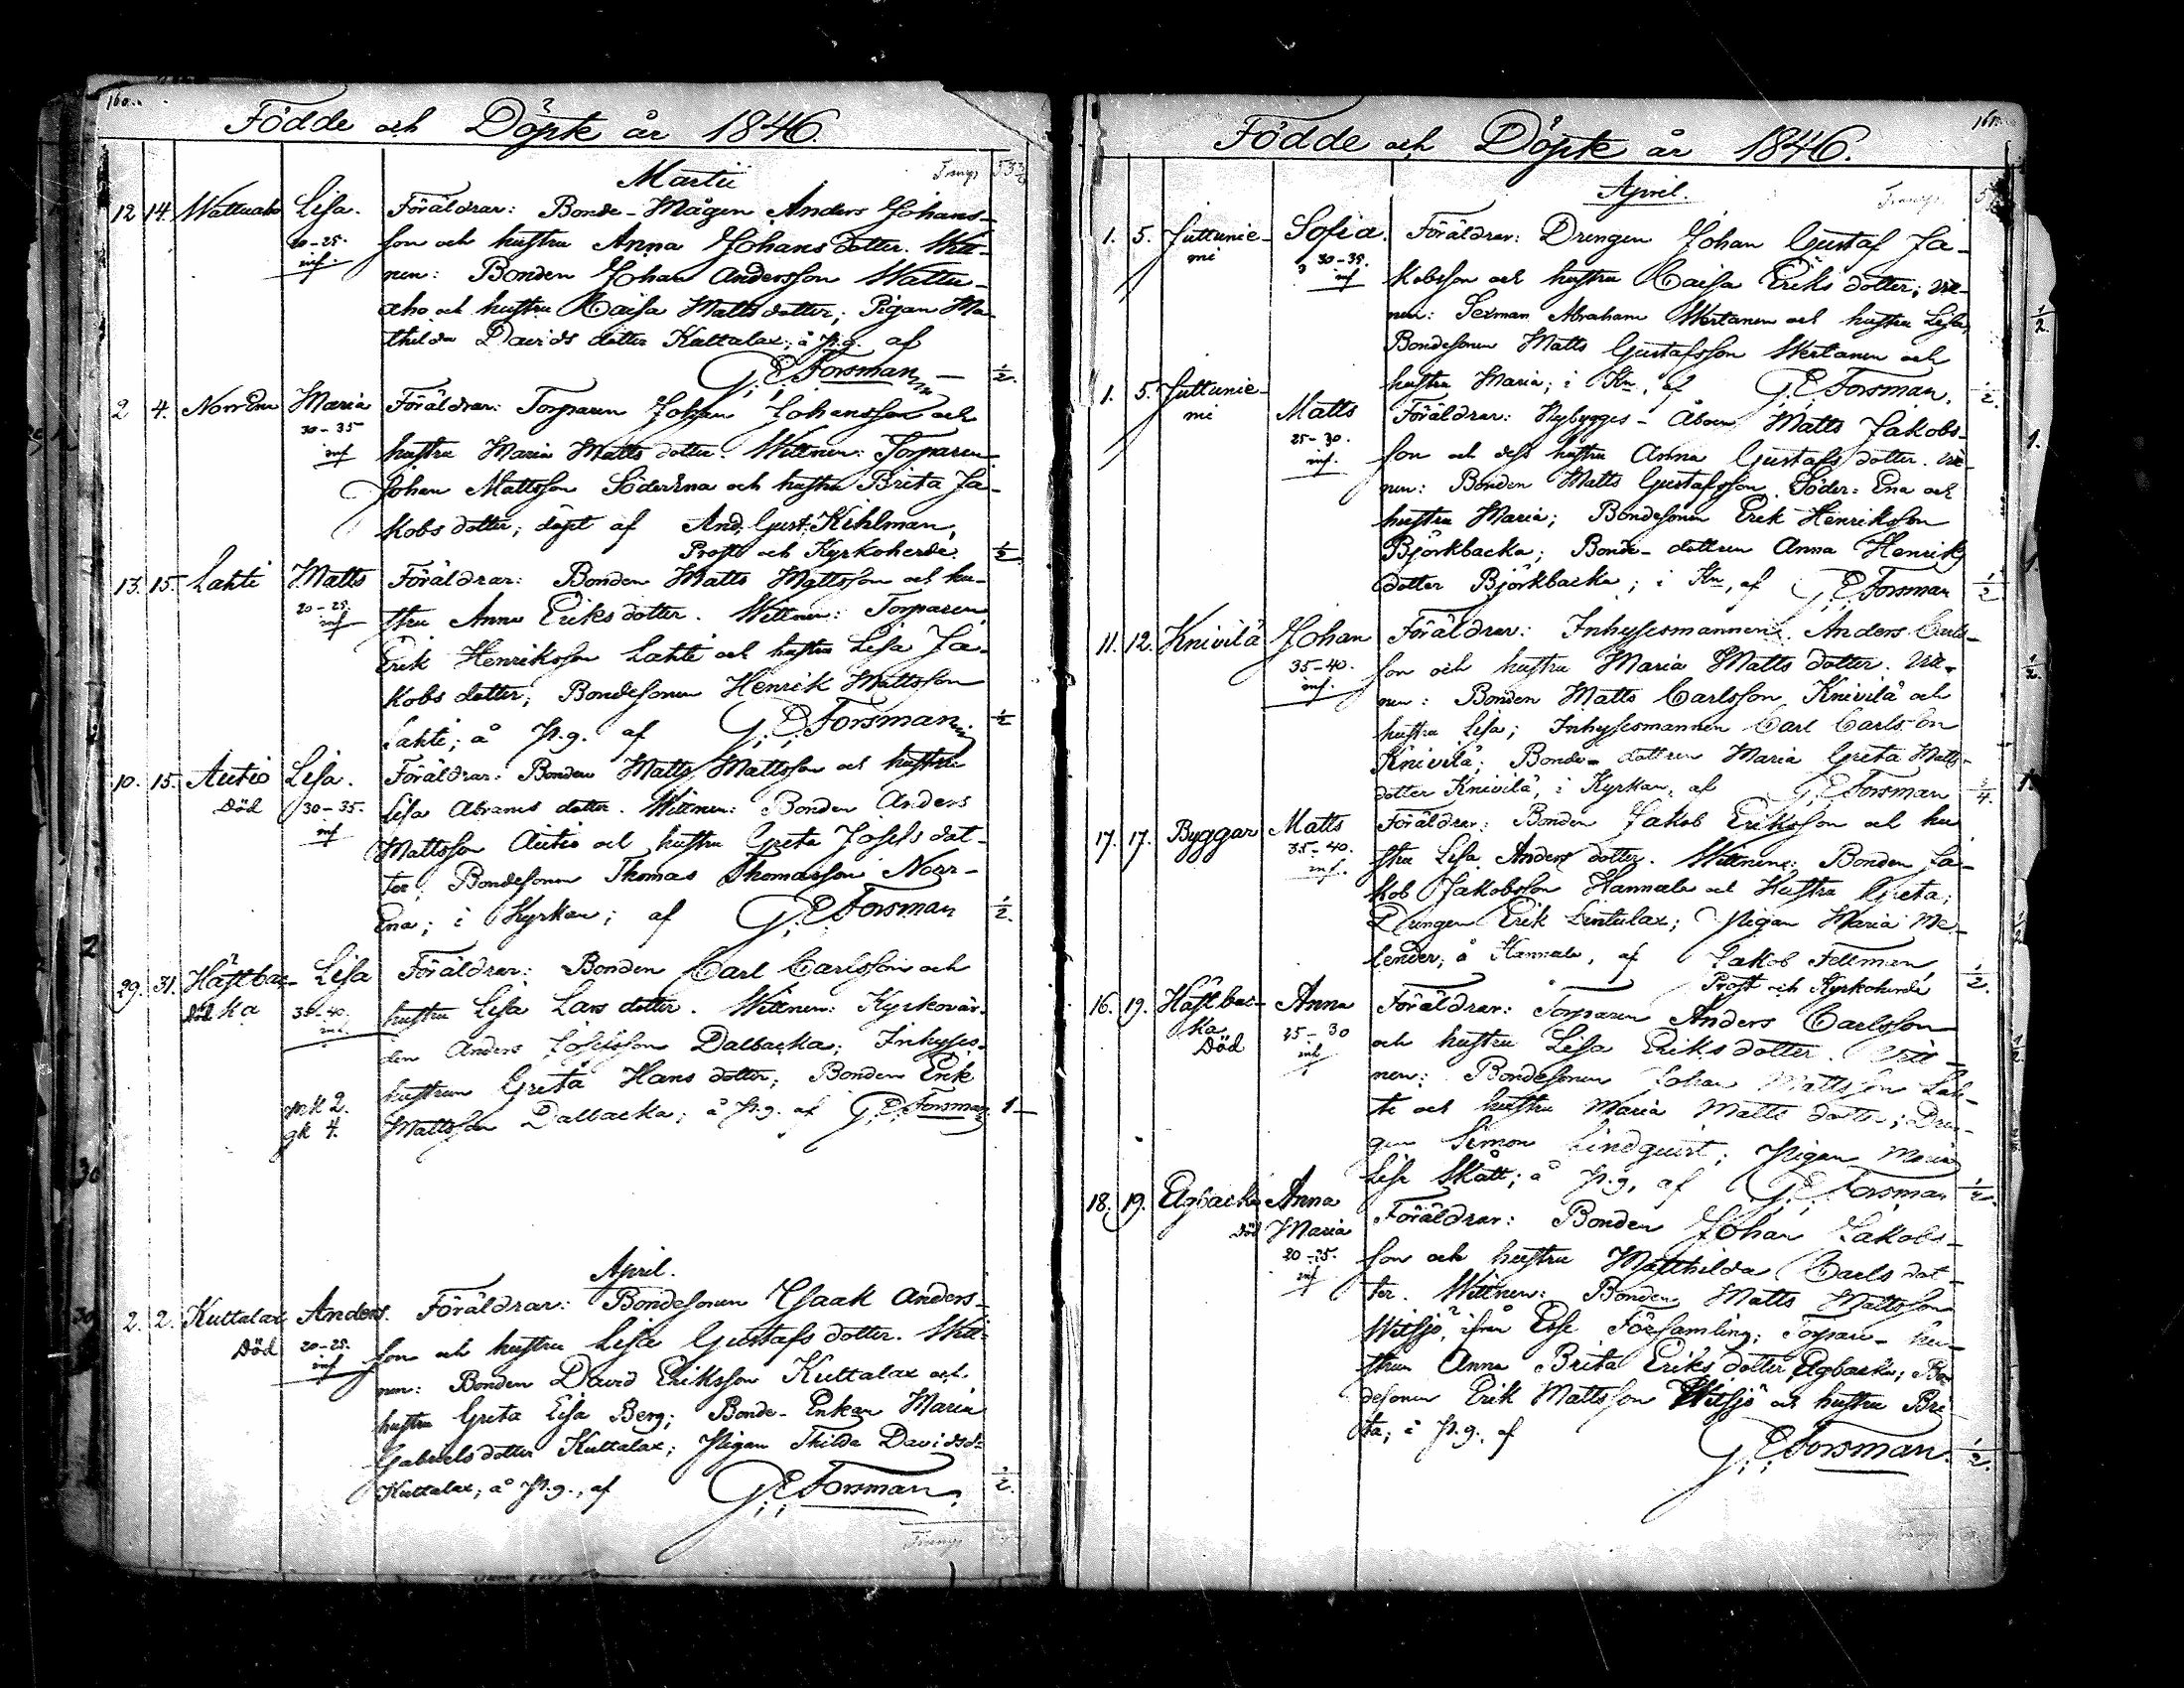 160.
Födde och Döpte år 1846.
Martii
12 14. Wattuaho Lisa. Föräldrar: Bonde-Mågen Anders Johans-
20-25. son och hustru Anna Johans dotter. Witt-
inf. nen: Bonden Johan Andersson Wattu-
aho och hustru Caisa Matts dotter; Pigan Ma-
thilda Davids dotter Kuttalax; å p.g. af
G. E. Forsman 1/2.
2 4. NorrEna Maria Föräldrar: Torparen Johan Johansson och
30-35 hustru Maria Matts dotter. Wittnen: Torparen
inf Johan Mattsson SöderEna och hustru Brita Ja-
kobs dotter; döpt af And. Gust. Kihlman,
Prost och Kyrkoherde. 1/2
13. 15. Lahti Matts Föräldrar: Bonden Matts Mattsson och hu-
20-25. stru Anna Eriks dotter. Wittnen: Torparen
inf Erik Henriksson Lahti och hustru Lisa Ja-
kobs dotter; Bondesonen Henrik Mattsson
Lahti; å p.g. af G. E. Forsman. 1/2
10. 15. Autio Lisa. Föräldrar: Bonden Matts Mattsson och hustru
Död 30-35. Lisa Abrams dotter. Wittnen: Bonden Anders
inf Mattsson Autio och hustru Greta Josefs dot-
ter; Bondesonen Thomas Thomasson Norr-
Ena; i Kyrkan; af G. E. Forsman 1/2.
29. 31. Hästbac- Lisa Föräldrar: Bonden Carl Carlsson och
Död ka 35-40. hustru Lisa Lars dotter. Wittnen: Kyrkovär-
inf. den Anders Josefsson Dalbacka; Inhyses-
hustrun Greta Hans dotter; Bonden Erik
mk 2. Mattsson Dalbacka; å p.g. af G. E. Forsman 1
gk 4.
April.
2. 2. Kuttalax Anders. Föräldrar: Bondesonen Isaak Anders-
Död 20-25. son och hustru Lisa Gustafs dotter. Witt-
inf nen: Bonden David Eriksson Kuttalax och
hustru Greta Lisa Berg; Bonde-Enkan Maria
Gabriels dotter Kuttalax; Pigan Thilda Davidsd:
Kuttalax; å p.g., af G. E. Forsman. 1/2.
161.
Födde och Döpte år 1846.
April.
1. 5. Juttunie- Sofia. Föräldrar: Drengen Johan Gustaf Ja-
mi 30-35. kobsson och hustru Caisa Eriks dotter; Witt-
inf nen: Sexman Abraham Wertanen och hustru Lisa,
Bondesonen Matts Gustafsson Wertanen och
hustru Maria; i Kn, af G. E. Forsman. 1/2.
1. 5. Juttunie- Matts Föräldrar: Nybygges-Åboen Matts Jakobs-
mi 25-30. son och dess hustru Anna Gustafs dotter. Witt-
inf. nen: Bonden Matts Gustafsson Söder-Ena och
hustru Maria; Bondesonen Erik Henriksson
Björkbacka; Bonde-dottren Anna Henriks
dotter Björkbacka; i Kn, af G. E. Forsman 1/2
11. 12. Knivilä Johan Föräldrar: Inhysesmannen Anders Carls-
35-40. son och hustru Maria Matts dotter. Witt-
inf. nen: Bonden Matts Carlsson Knivilä och
hustru Lisa; Inhysesmannen Carl Carlsson
Knivilä; Bonde-dottren Maria Greta Matts-
dotter Knivilä, i Kyrkan, af G. E. Forsman 3/4.
17. 17. Byggar Matts Föräldrar: Bonden Jakob Eriksson och hu
35-40. stru Lisa Anders dotter. Wittnen: Bonden Ja-
inf. kob Jakobsson Hannala och Hustru Greta;
Drengen Erik Lintulax; Pigan Maria Me-
lender; å Hannala, af Jakob Fellman,
Prost och Kyrkoherde 1/2.
16. 19. Hästbac- Anna Föräldrar: Torparen Anders Carlsson
ka 25-30 och hustru Lisa Eriks dotter. Witt-
Död inf nen: Bondesonen Johan Mattsson Lah-
ti och hustru Maria Matts dotter; Dren-
gen Simon Lindquist; Pigan Maria
Lisa Skått; å p.g. af G. E. Forsman 1/2.
18. 19. Elgbacka Anna Föräldrar: Bonden Johan Jakobs-
Död Maria son och hustru Matthilda Carls dot-
20-25. ter. Wittnen: Bonden Matts Mattsson
inf Witsjö, ifrån Esse Församling; Torpare-hu-
strun Anna Brita Eriks dotter Elgbacka; Bon
desonen Erik Mattsson Witsjö och hustru Bri-
ta; å p.g. af
G. E. Forsman. 1/2.